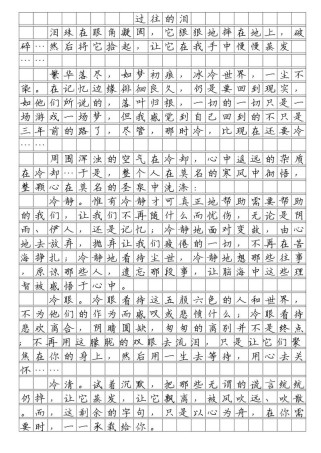 过往的泪
泪珠在眼角凝固，它狠狠地摔在地上，破
碎……然后将它拾起，让它在我手中慢慢蒸发
……
繁华落尽，如梦初痕，冰冷世界，一尘不
染。在记忆边缘徘徊良久，仍是要回到现实，
如他们所说的，落叶归根，一切的一切只是一
场游戏一场梦，但我感觉到自己回到的不只是
三年前的路了，尽管，那时冷，比现在还要冷
……
周围浑浊的空气在冷却，心中遥远的杂质
在冷却…于是，整个人在莫名的寒风中彻悟，
整颗心在莫名的圣泉中洗涤：
冷静。惟有冷静才可真正地帮助需要帮助
的我们，让我们不再随什么而忧伤，无论是阴
雨、伊人，还是记忆；冷静地面对变故，由心
地去放弃，抛弃让我们疲倦的一切，不再在苦
海挣扎；冷静地看待世间，冷静地想那些往事
，原谅那些人，遗忘那段事，让脑海中这些理
智被感悟于心中。
冷眼。冷眼看待这五颜六色的人和世界，
不为他们的作为而感叹或悲愤什么；冷眼看待
悲欢离合，阴晴圆缺，匆匆的离别并不是终点
；不再用这朦胧的双眼去流泪，只是让它们聚
焦在你的身上，然后用一生去等待，用心去关
怀……
冷清。试着沉默，把那些无谓的谎言统统
扔掉，让它蒸发，让它飘离，被风吹远、吹散
。而，这剩余的字句，只是以心为舟，在你需
要时，一一承载给你。